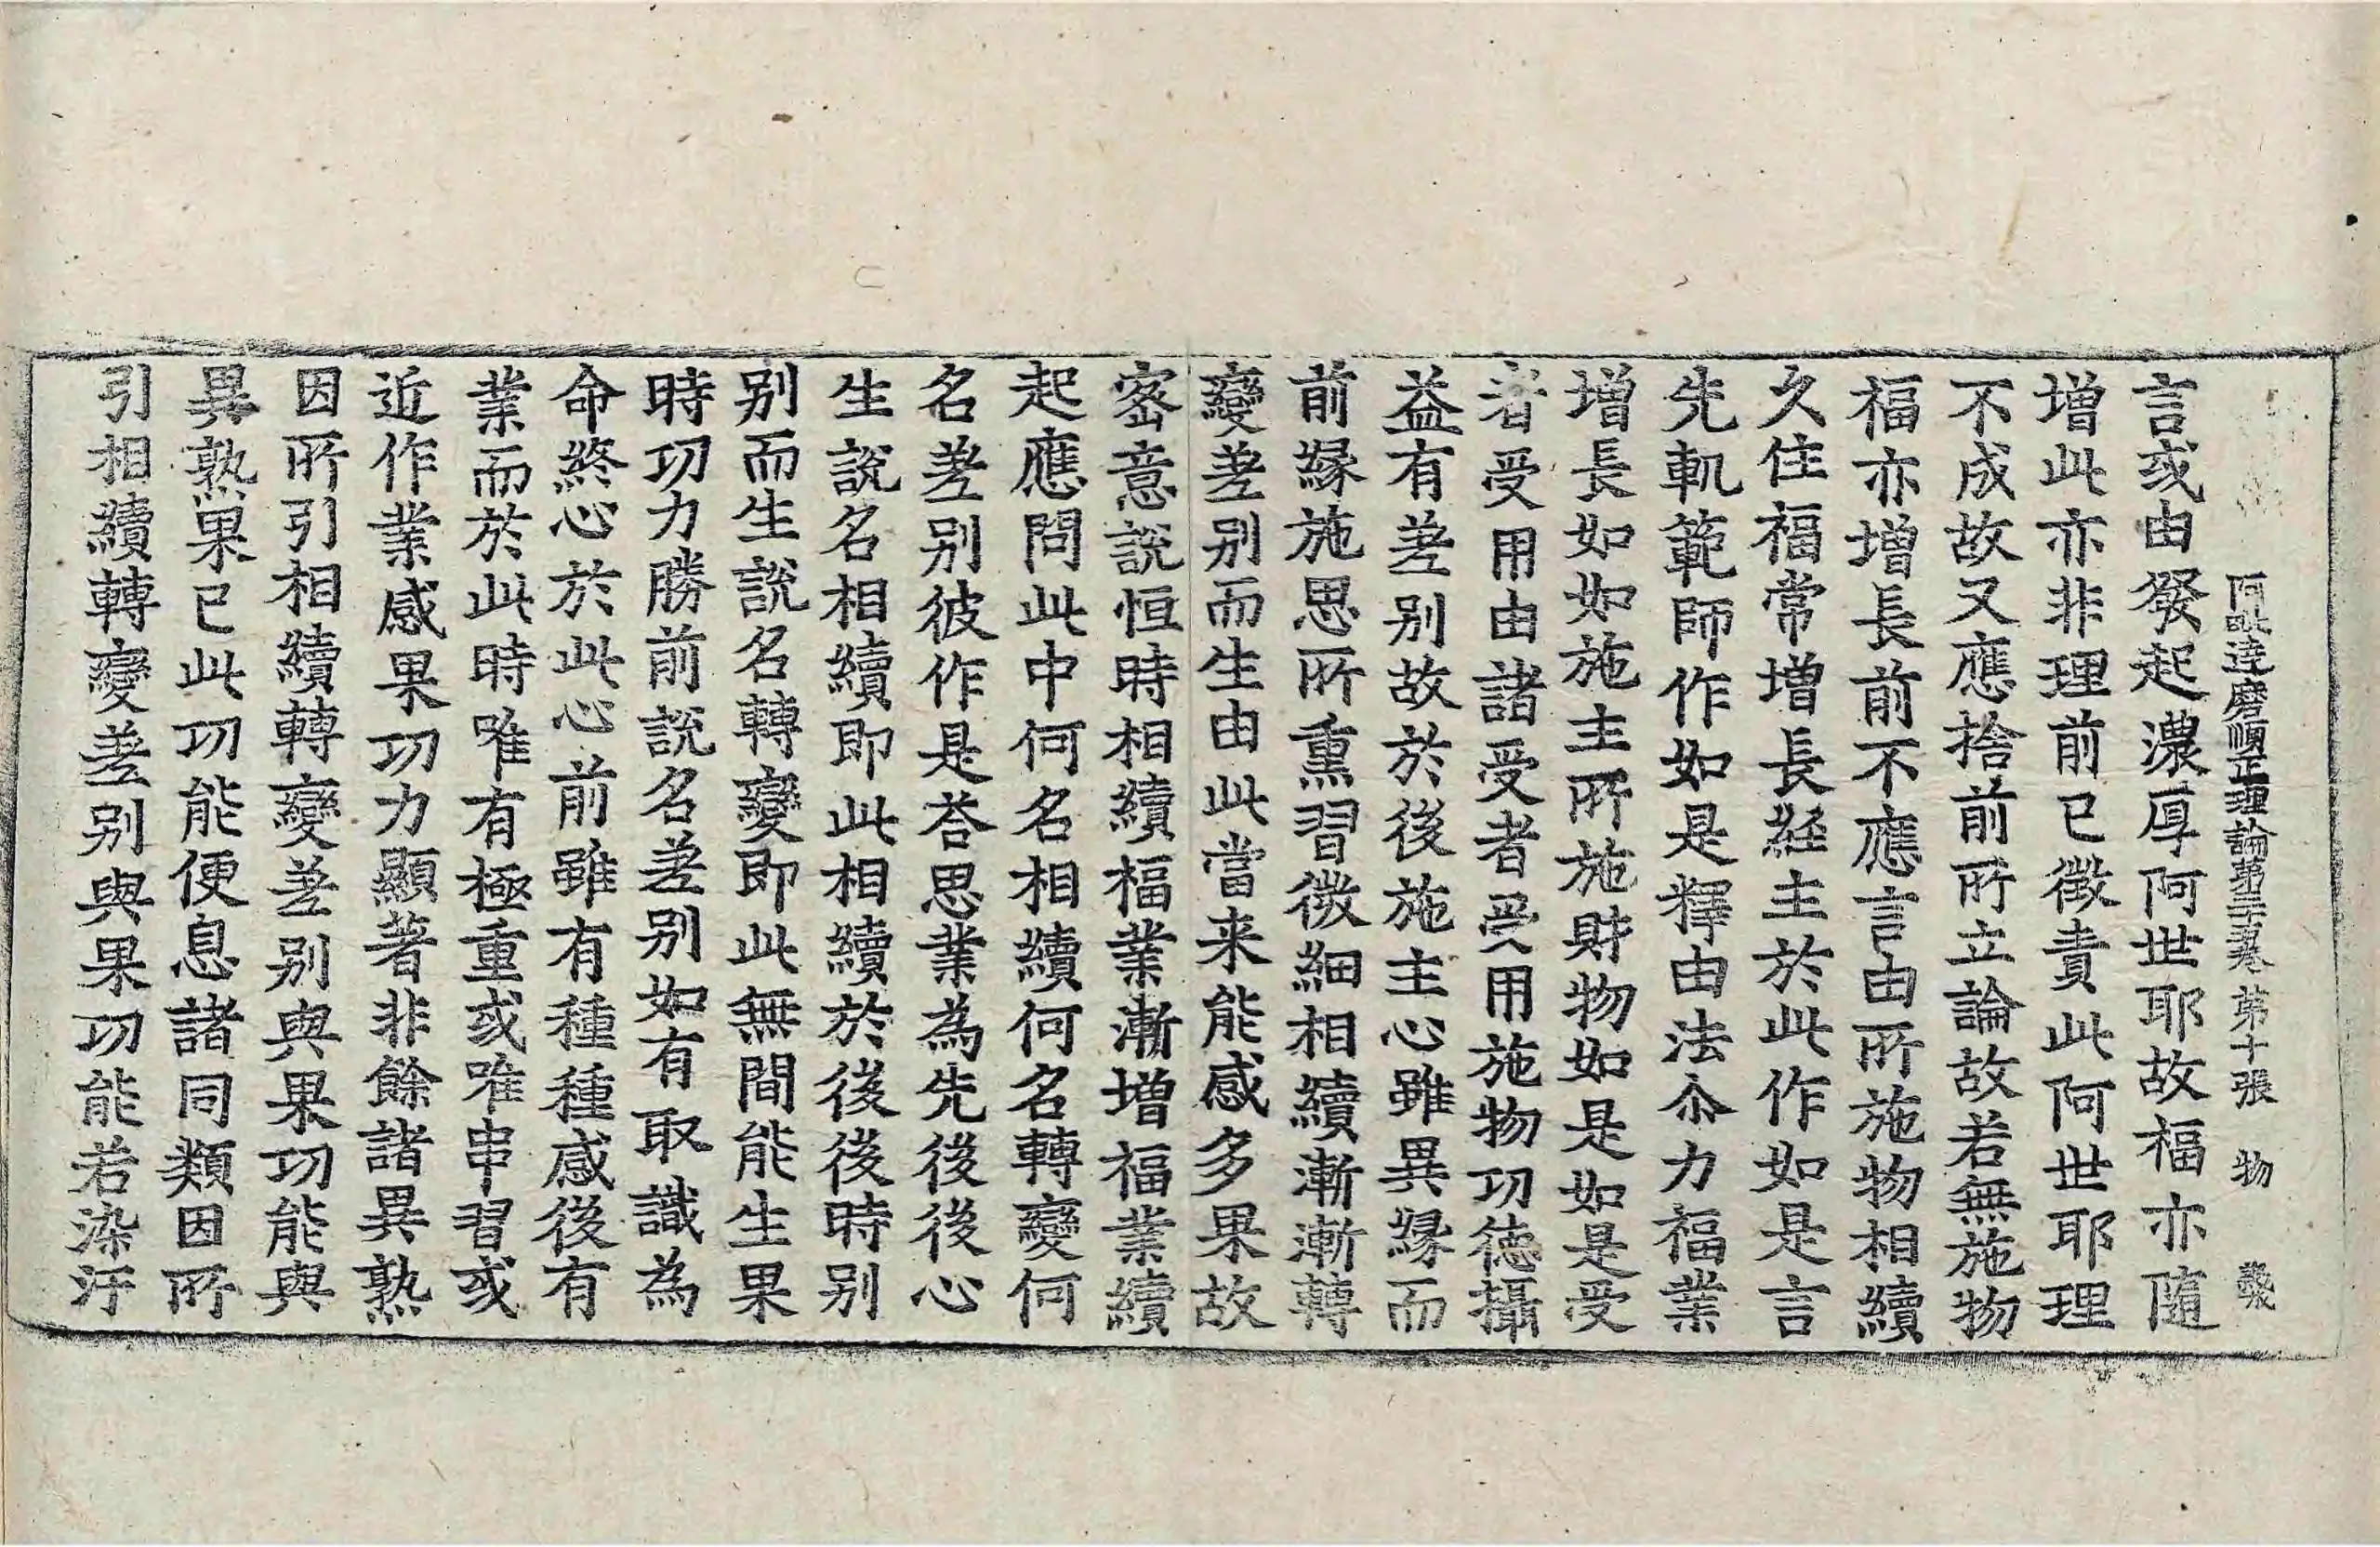 阿毗達磨順正理論第三十五卷 第十張 物
言或由發起濃厚阿世耶故福亦隨
增此亦非理前已徵責此阿世耶理
不成故又應捨前所立論故若無施物
福亦增長前不應言由所施物相續
久住福常增長経主於此作如是言
先軌範師作如是釋由法尒力福業
增長如如施主所施財物如是如是受
者受用由諸受者受用施物功徳攝
益有差别故於後施主心雖異緣而
前緣施思所熏習微細相續漸漸轉
變差别而生由此當来能感多果故
密意說恒時相續福業漸增福業續
起應問此中何名相續何名轉變何
名差别彼作是荅思業為先後後心
生說名相續即此相續於後後時别
别而生說名轉變即此無間能生果
時功力勝前說名差别如有取識為
命終心於此心前雖有種種感後有
業而於此時唯有極重或唯串習或
近作業感果功力顯著非餘諸異熟
因所引相續轉變差别與果功能與
異熟果已此功能便息諸同類因所
引相續轉變差别與果功能若染汙